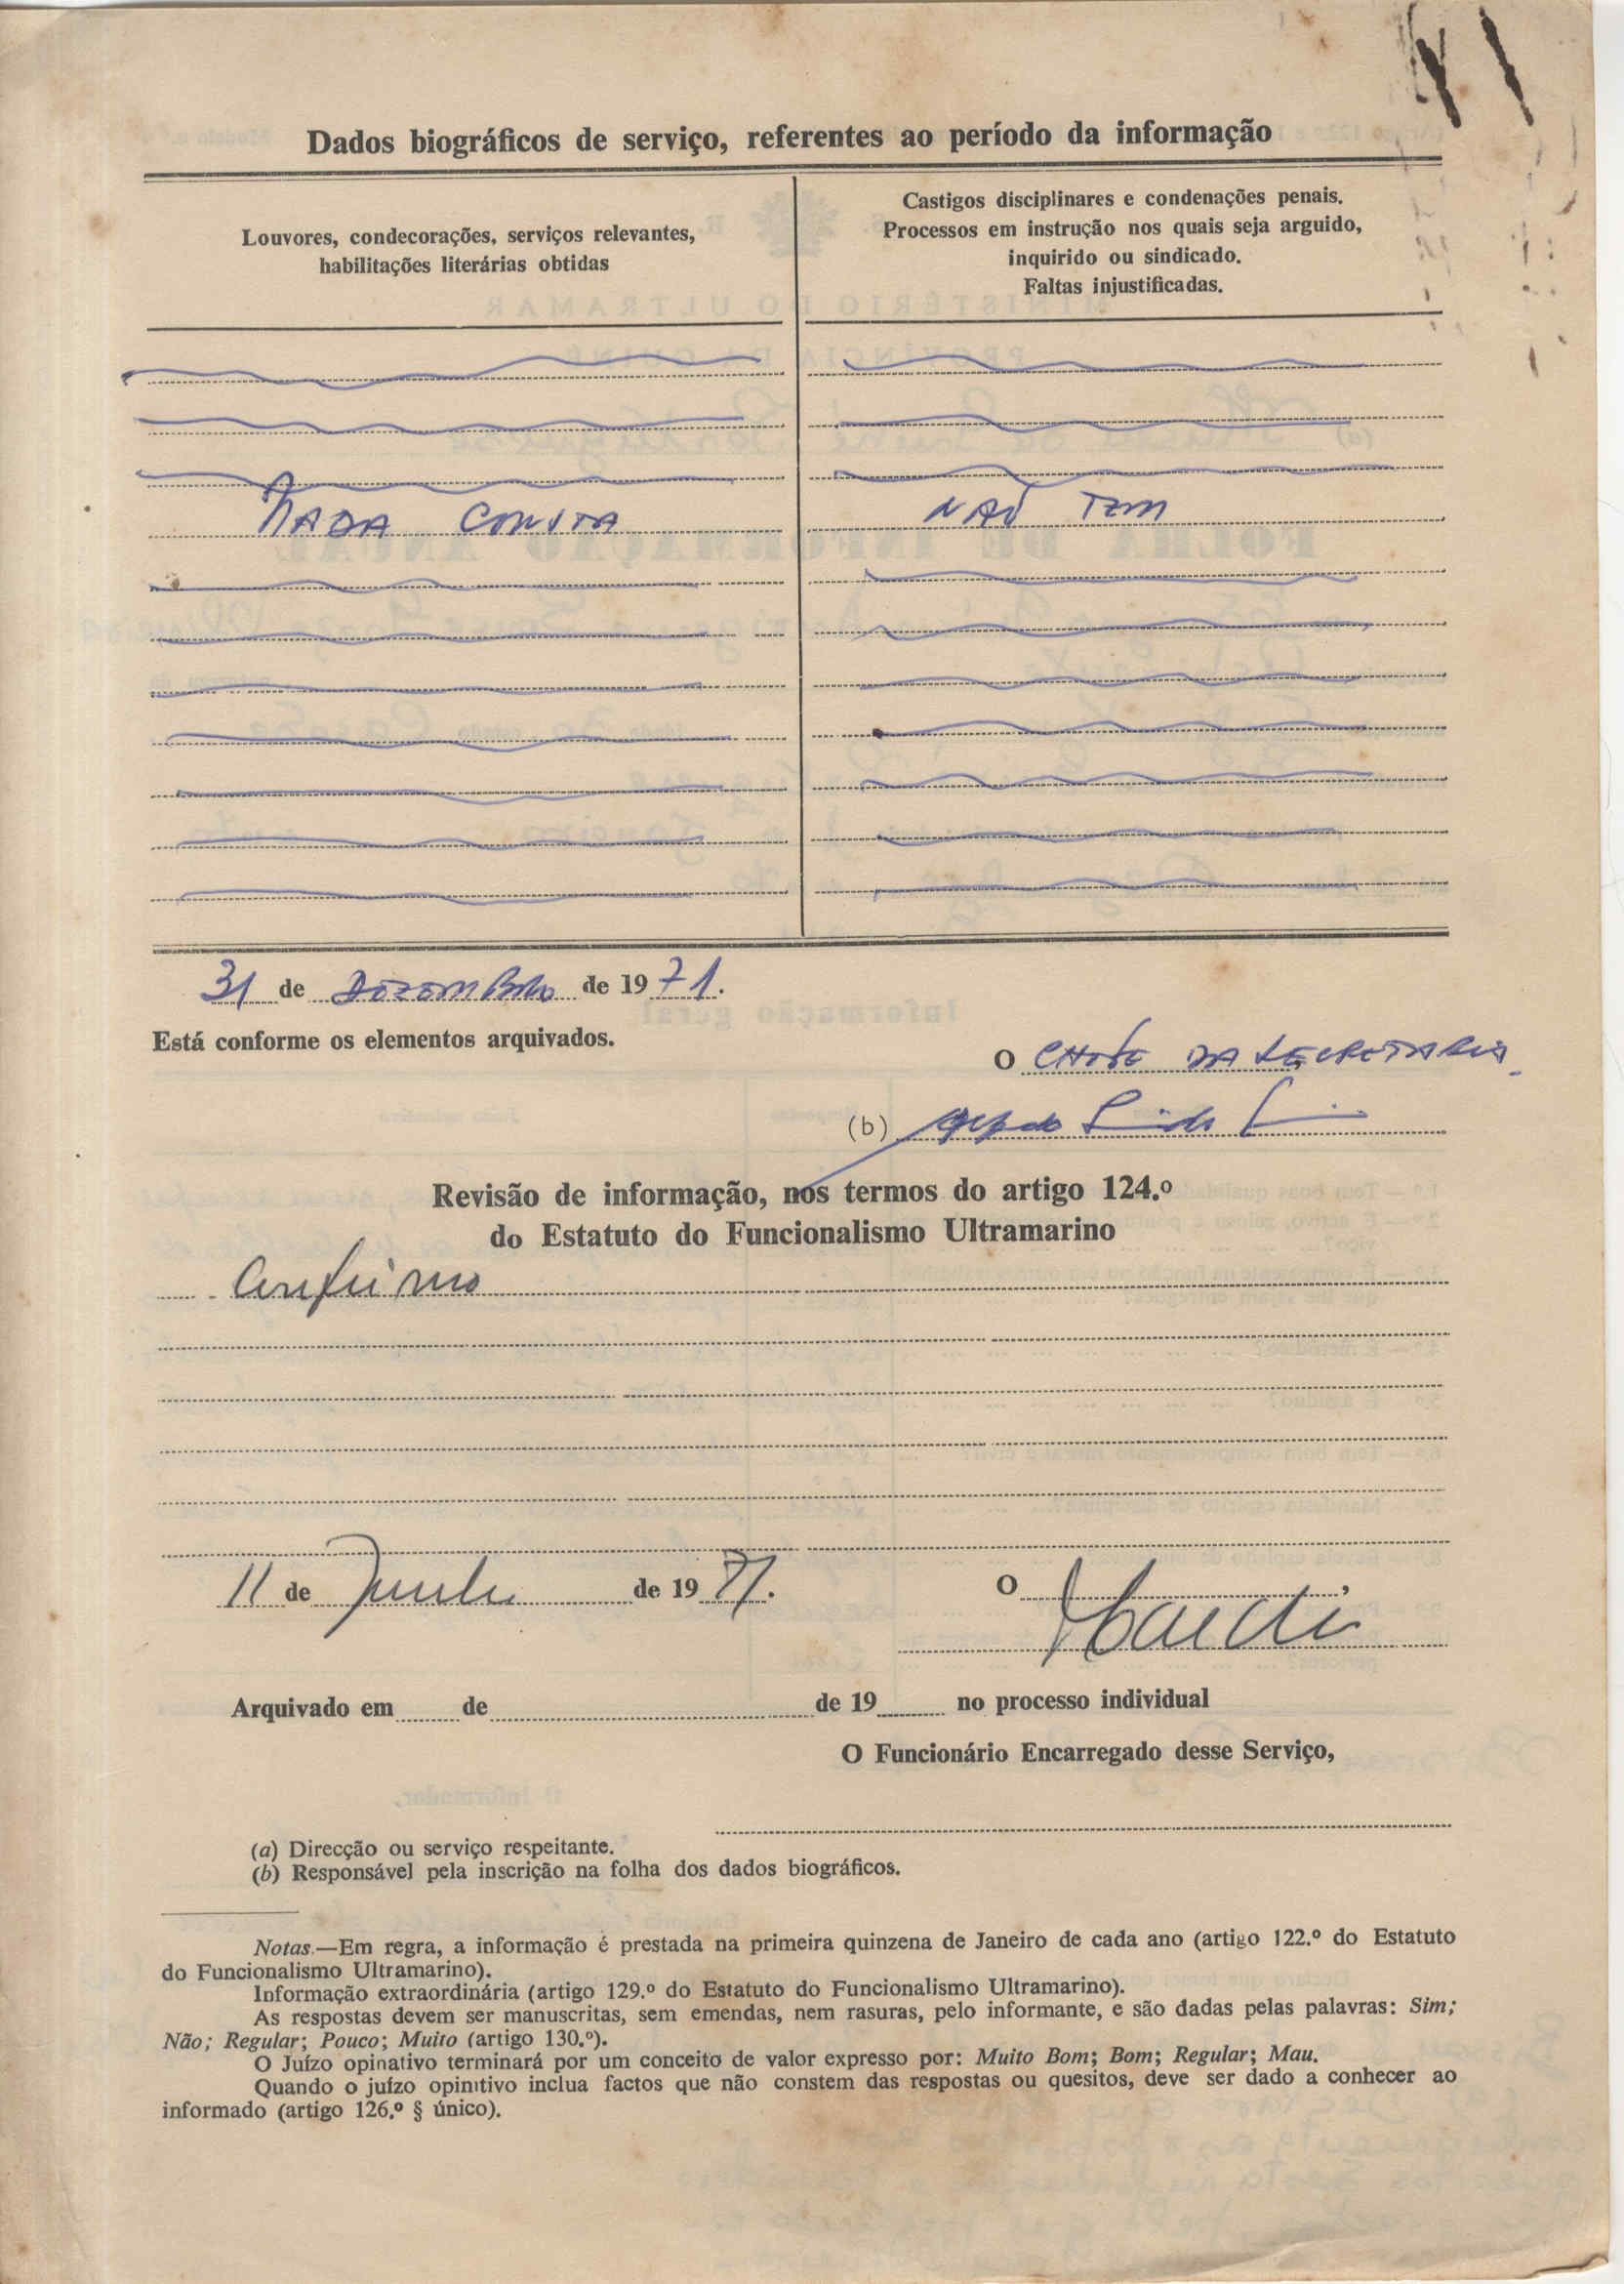 Dados biográficos de serviço, referentes ao período da informação
Louvores, condecorações, serviços relevantes,
habilitações literárias obtidas
Castigos disciplinares e condenações penais.
Processos em instrução nos quais seja arguido,
inquirido ou sindicado.
Faltas injustificadas.
NADA CONSTA
NAÕ TEM
31 de DEZEMBRO de 1971.
Está conforme os elementos arquivados.
O CHEFE DA SECRETARIA
(b)
Revisão de informação, nos termos do artigo 124.º
do Estatuto do Funcionalismo Ultramarino
Confirmo
11 de de 1971. O ,
Arquivado em de de 19 no processo individual
O Funcionário Encarregado desse Serviço,
(a) Direcção ou serviço respeitante.
(b) Responsável pela inscrição na folha dos dados biográficos.
Notas.—Em regra, a informação é prestada na primeira quinzena de Janeiro de cada ano (artigo 122.º do Estatuto
do Funcionalismo Ultramarino).
Informação extraordinária (artigo 129.º do Estatuto do Funcionalismo Ultramarino).
As respostas devem ser manuscritas, sem emendas, nem rasuras, pelo informante, e são dadas pelas palavras: Sim;
Não; Regular; Pouco; Muito (artigo 130.º).
O Juízo opinativo terminará por um conceito de valor expresso por: Muito Bom; Bom; Regular; Mau.
Quando o juízo opinitivo inclua factos que não constem das respostas ou quesitos, deve ser dado a conhecer ao
informado (artigo 126.º § único).